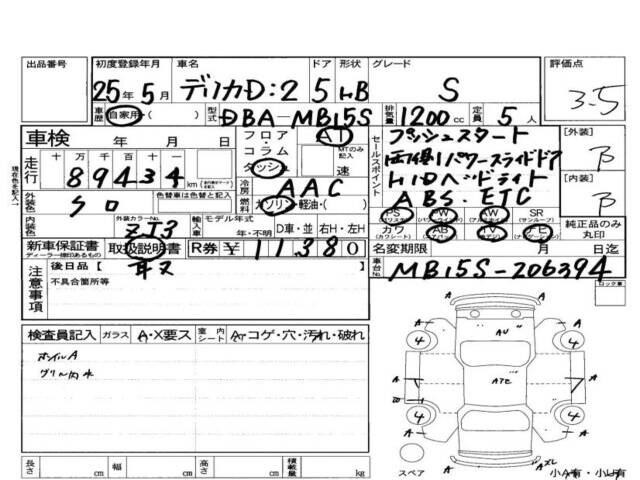 出品番号 初度登録年月 車名 ドア 形状 グレード 評価点
25年5月 デリカD:2 5 HB S 3.5
車歴 自家用・( ) 型式 DBA-MB15S 排気量 1200cc 定員 5人
車検 年 月 日 フロア AT プッシュスタート [外装]
コラム MTのみ記入 セールスポイント 両側パワースライドドア B
走行 十 万 千 百 十 一 ダッシュ 速 HIDヘッドライト
89434 km 冷房 AAC ABS.ETC [内装]
外装色 シロ 色替車は色替と記入 燃料 ガソリン・軽油・( ) PS PW AW SR B
(パワステ) (サンルーフ)
内装色 外装カラーNo. ZJ3 輸入車 モデル年式 カワ AB TV ナビ 純正品のみ丸印
年・不明 D車・並 右H・左H (カワシート) (エアバッグ) (テレビ) (ナビゲーション)
新車保証書 取扱説明書 R券 ¥ 11380 名変期限 月 日迄
ディーラー捺印あるもの
注意事項 後日品【 車台No. MB15S-206394
不具合箇所等 ロック車
現在色を記入→
検査員記入 ガラス A・X要ス 室内シート A・コゲ・穴・汚れ・破れ
ホイルA
A
A AU A
4 4
A ATE A
4 4
A AXL
スペア 小A有・小U有
長さ cm 幅 cm 高さ cm 積載量 kg